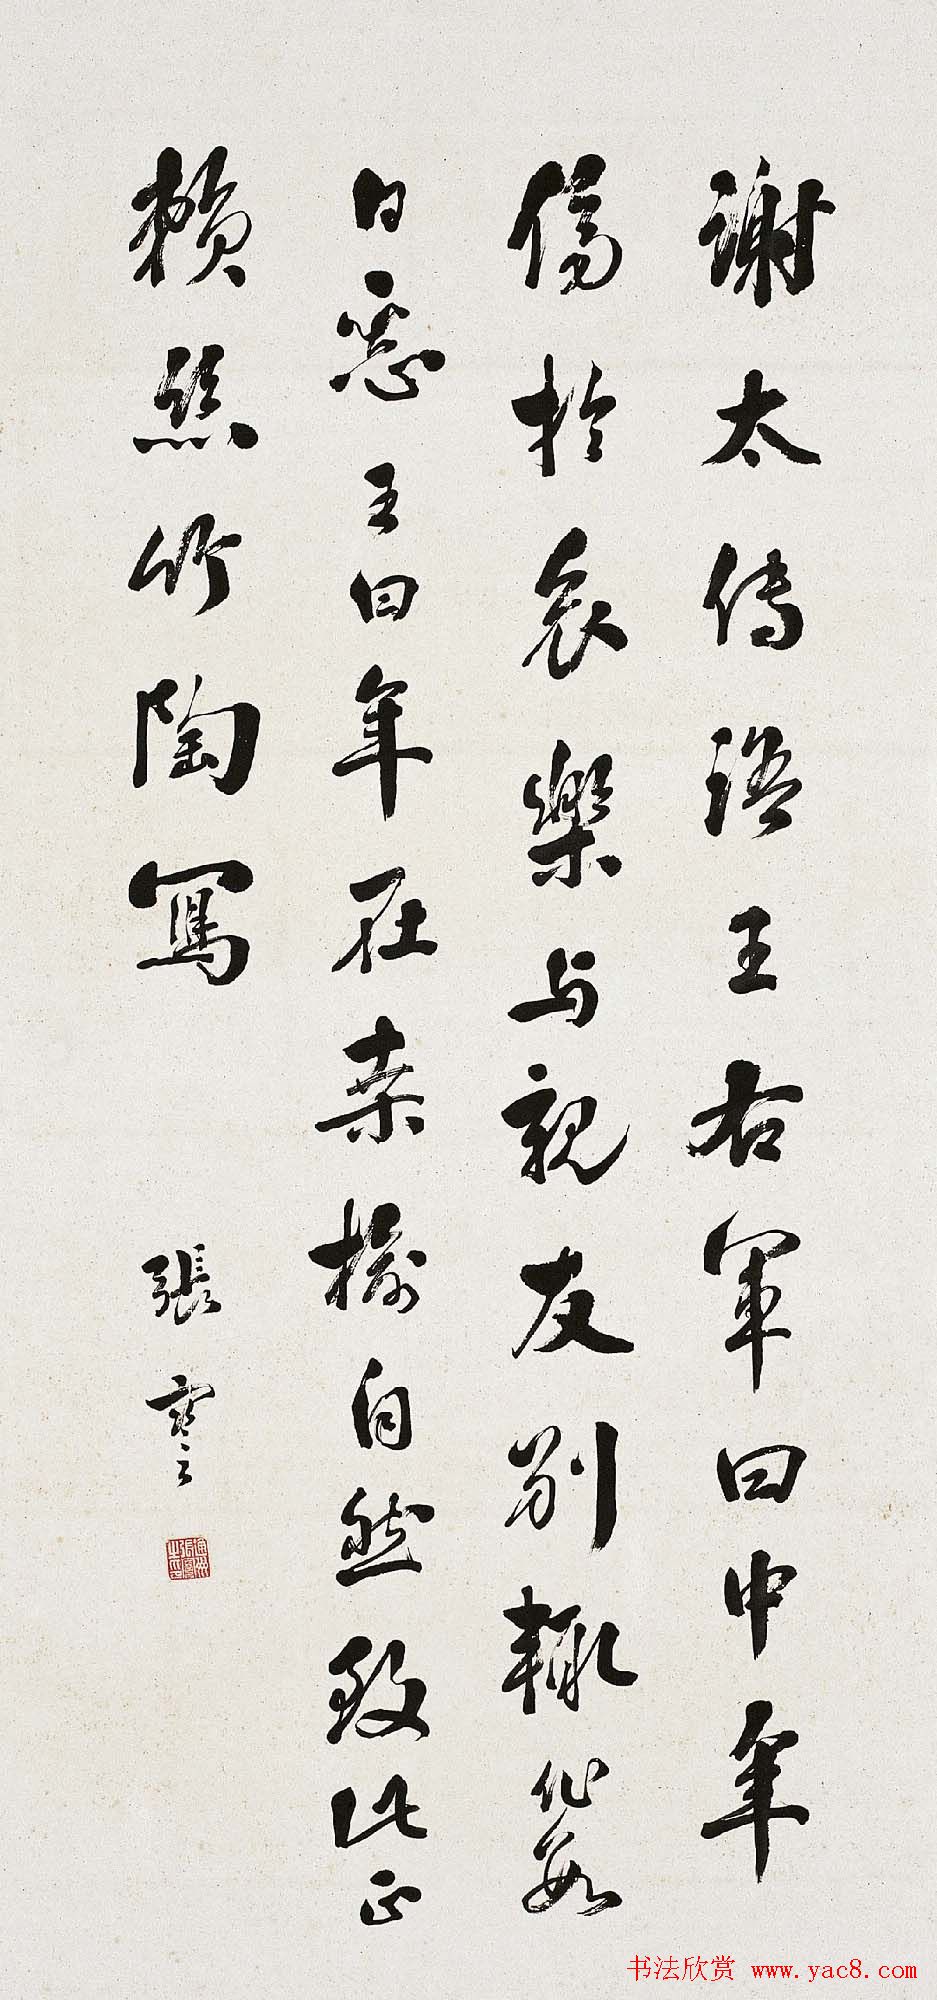 謝太傅語王右軍曰中年
傷於哀樂与親友別輒作數
日惡王曰年在桒榆自然致此正
賴絲竹陶寫
張謇
书法欣赏 www.yac8.com